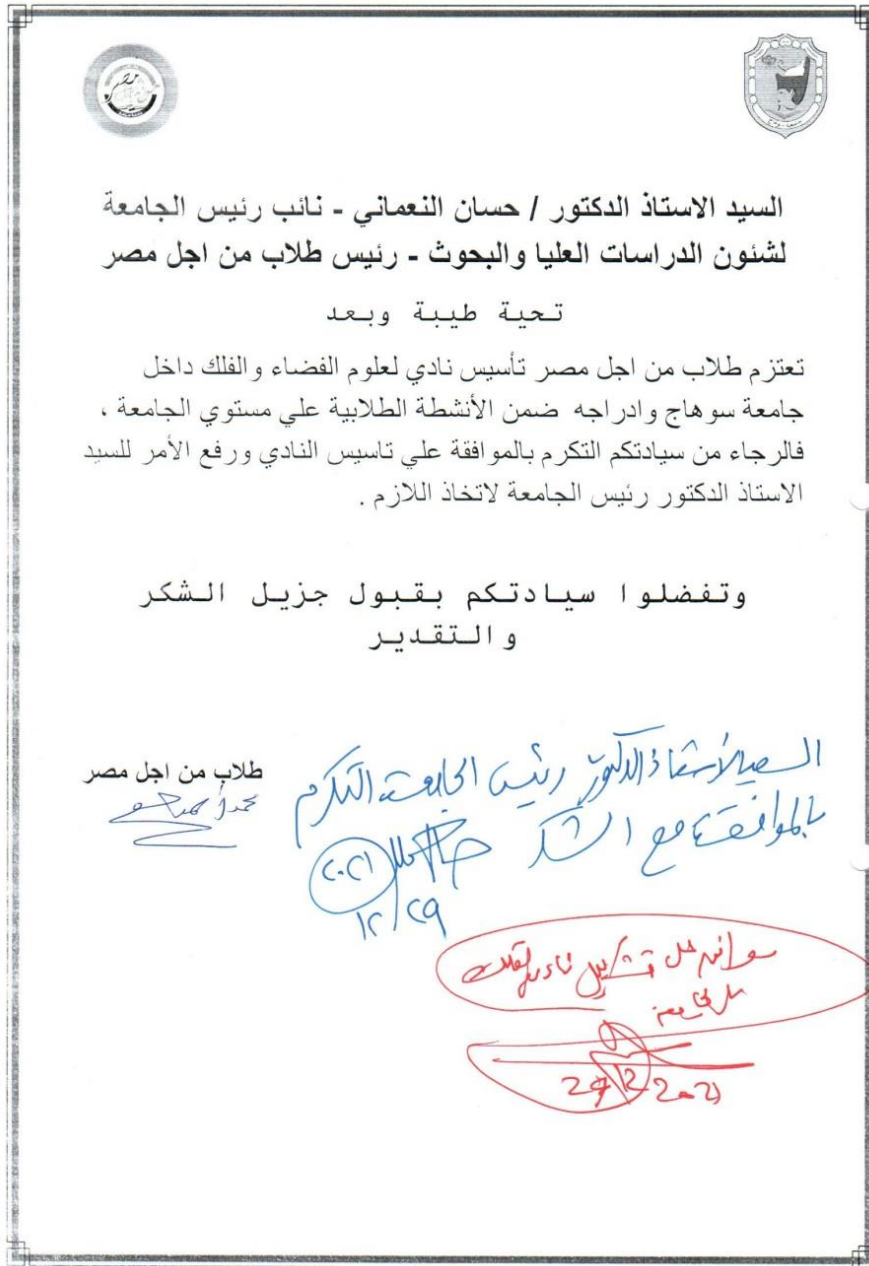 السيد الاستاذ الدكتور / حسان النعماني - نائب رئيس الجامعة
لشئون الدراسات العليا والبحوث - رئيس طلاب من اجل مصر
تحية طيبة وبعد
تعتزم طلاب من اجل مصر تأسيس نادي لعلوم الفضاء والفلك داخل
جامعة سوهاج وادراجه ضمن الأنشطة الطلابية علي مستوي الجامعة ،
فالرجاء من سيادتكم التكرم بالموافقة علي تاسيس النادي ورفع الأمر للسيد
الاستاذ الدكتور رئيس الجامعة لاتخاذ اللازم .
وتفضلوا سيادتكم بقبول جزيل الشكر
والتقدير
طلاب من اجل مصر
السيد الأستاذ الدكتور رئيس الجامعة التكرم
بالموافقة مع الشكر
٢٠٢١
١٢/٢٩
تشكيل نادي الفلك
بالجامعة
29/12 2021